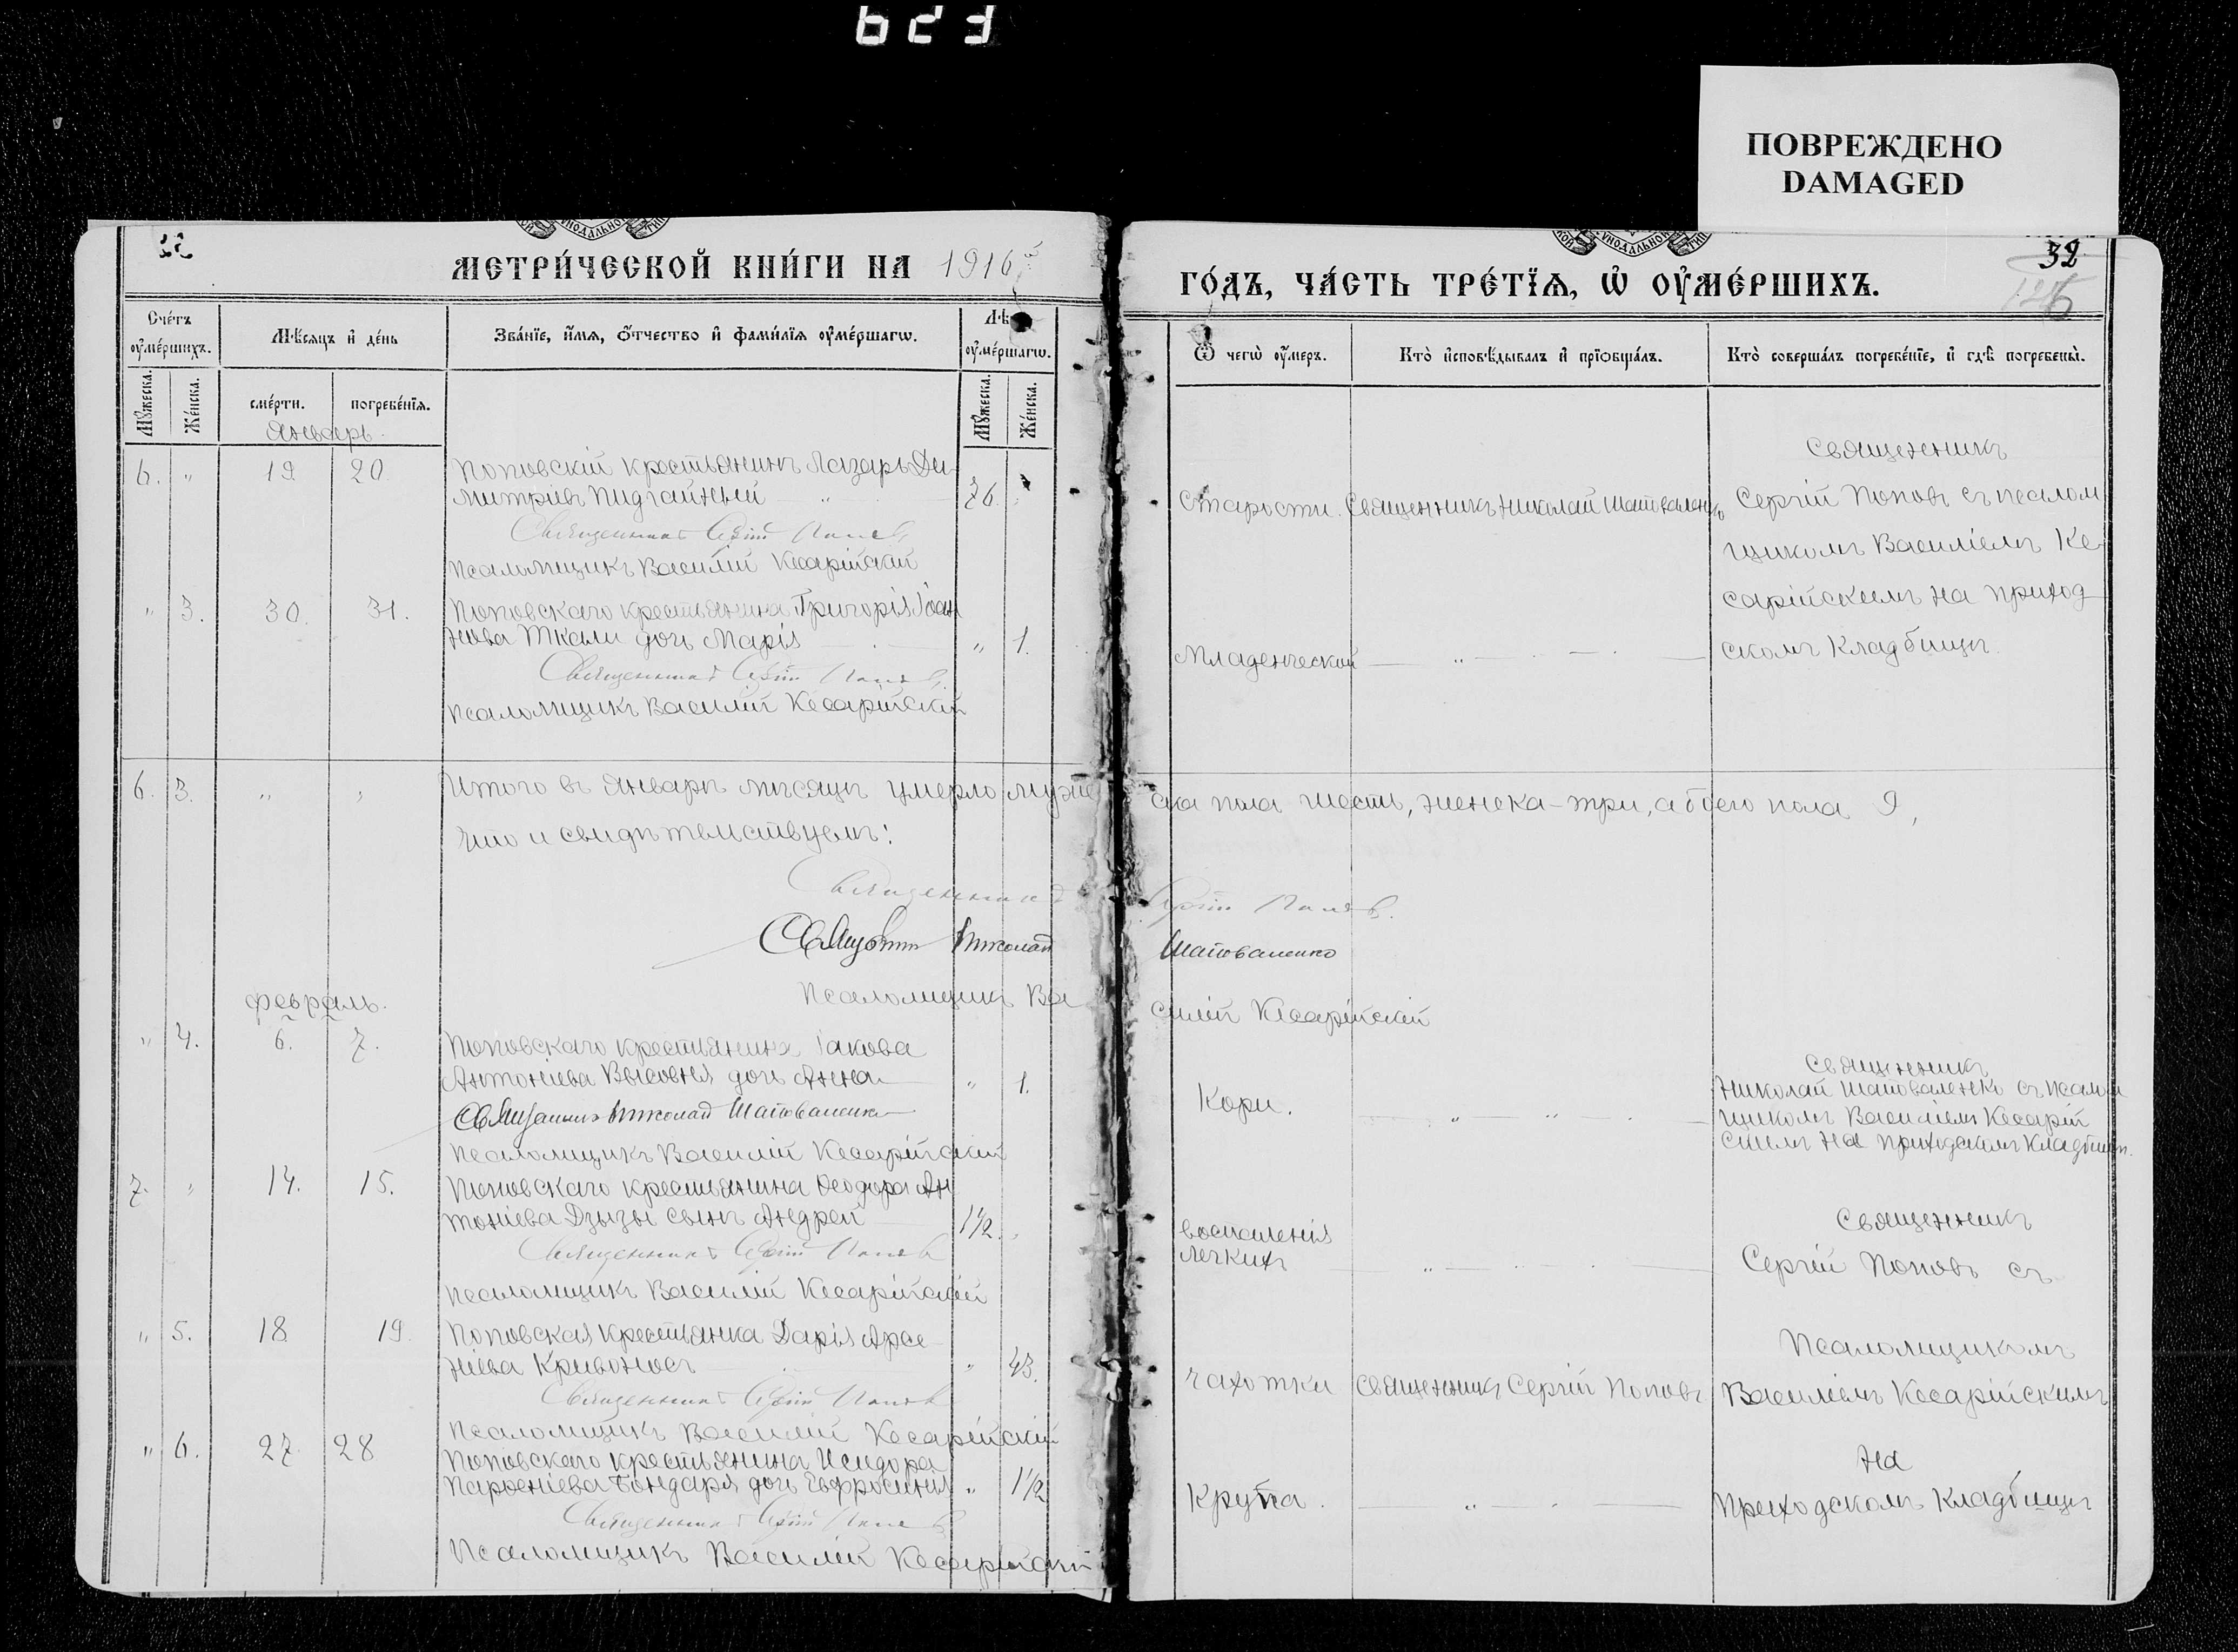 623
ПОВРЕЖДЕНО
DAMAGED
МЕТРИ́ЧЕСКОЙ КНИ́ГИ НА 1916й
ГО́ДЪ, ЧА́СТЬ ТРЕ́ТЇѦ, Ѡ҆ ОУ҆МЕ́РШИХЪ.
32
Сче́тъ оу҆ме́ршихъ.
Мѣ́сяцъ и҆ де́нь
Зва́нїе, и҆́мя, ѻ҆́тчество и҆ фами́лїя оу҆ме́ршагѡ.
оу҆ме́ршагѡ.
Ѿ чегѡ̀ оу҆́меръ.
Кто̀ и҆сповѣ́дывалъ и҆ прїѡбща́лъ.
Кто̀ соверша́лъ погребе́нїе, и҆ гдѣ̀ погребены̀.
Мꙋ́жеска.
Же́нска.
сме́рти.
погребе́нїя.
Мꙋ́жеска.
Же́нска.
Январь.
6. " 19 20 Поповскій крестьянинъ Лазарь Ди-
митріевъ Пидгайный " 76. "
Священникъ Сергій Поповъ
Псаломщикъ Василій Кесарійскій
Старости. Священникъ Николай Шаповаленко
Священникъ
Сергій Поповъ съ псалом
щикомъ Василіемъ Ке-
сарійскимъ на приход
скомъ кладбищѣ.
" 3. 30. 31. Поповскаго крестьянина Григорія Іоан
нова Ткали дочь Марія " 1.
Священникъ Сергій Поповъ
Псаломщикъ Василій Кесарійскій
Младенческой "
6. 3. " " Итого въ Январѣ мѣсяцѣ умерло муже
ска пола шесть, женска - три, обоего пола 9,
что и свидѣтельствуемъ:
Священникъ Сергій Поповъ.
Священникъ Николай Шаповаленко
Псаломщикъ Василій Кесарійскій
Февраль.
" 4. 6. 7. Поповскаго крестьянина Іакова
Антоніева дочь Анна " 1.
Священникъ Николай Шаповаленко
Псаломщикъ Василій Кесарійскій
Кори. " "
Священникъ
Николай Шаповаленко съ псалом
щикомъ Василіемъ Кесарій
скимъ на приходскомъ кладбищѣ.
7. " 14. 15. Поповскаго крестьянина Ѳеодора Ан
тоніева Дзызы сынъ Андрей 1½. "
Священникъ Сергій Поповъ
Псаломщикъ Василій Кесарійскій
воспаленія
легкихъ "
Священникъ
Сергій Поповъ съ
" 5. 18 19. Поповская крестьянка Дарія Арсе-
ніева Кривоносъ " 43.
Священникъ Сергій Поповъ
Псаломщикъ Василій Кесарійскій
чахотки Священникъ Сергій Поповъ
Псаломщикомъ
Василіемъ Кесарійскимъ
" 6. 27. 28 Поповскаго крестьянина Исидора
Парѳеніева Бондаря дочь Евфросинія " 1½
Священникъ Сергій Поповъ
Псаломщикъ Василій Кесарійскій
Крупа. "
на
приходскомъ кладбищѣ